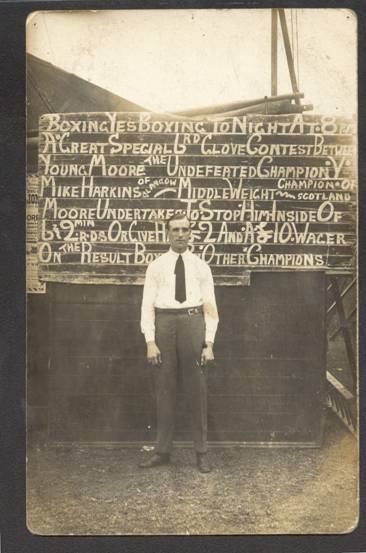 BOXING YES BOXING TO NIGHT AT 8
A GREAT SPECIAL 6 RD GLOVE CONTEST BETWEEN
YOUNG MOORE THE UNDEFEATED CHAMPION V
MIKE HARKINS OF GLASGOW MIDDLE WEIGHT CHAMPION OF SCOTLAND
MOORE UNDERTAKES TO STOP HIM INSIDE OF
6 2 MIN R DS OR GIVE HIM £2 AND A £10 WAGER
ON THE RESULT BOX OTHER CHAMPIONS